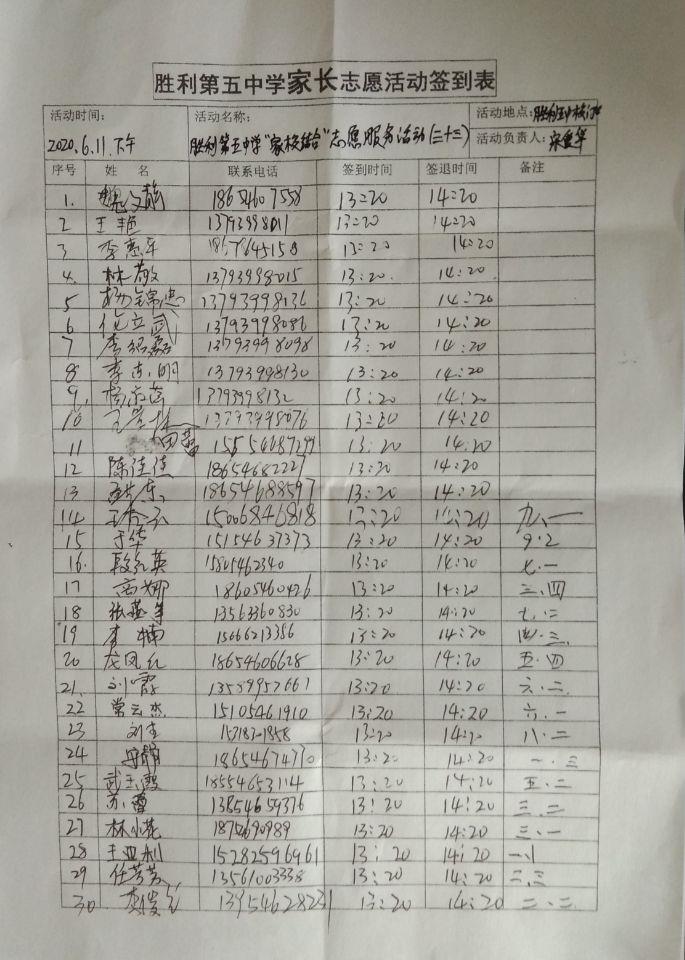 胜利第五中学家长志愿活动签到表
活动时间: 活动名称: 活动地点: 胜利五中校门口
2020.6.11.下午 胜利第五中学"家校结合"志愿服务活动(三十三) 活动负责人:
序号 姓 名 联系电话 签到时间 签退时间 备注
1. 魏文静 18654607558 13:20 14:20
2 王艳 13793998011 13:20 14:20
3 13:20 14:20
4. 林敬 13793998015 13:20. 14:20
5 13793998136 13:20 14:20
6 13793998086 13:20 14:20
7 13793998098 13:20 14:20
8 李志明 13793998130 13:20 14:20
9. 13793998132 13:20 14:20
10 13793998076 13:20 14:20
11 13:20 14:20
12 陈佳佳 18654682227 13:20 14:20
13 18654688597 13:20 14:20
14 15006846818 13:20 14:20 九、一
15 于华 15154637373 13:20 14:20 9.2
16. 15805462340 13:20 14:20 七.一
17 高娜 18605460426 13:20 14:20 三.四
18 13563360830 13:20 14:20 七.二
19 李楠 15666213356 13:20 14:20 四.三
20 龙凤红 18654606628 13:20 14:20 五.四
21. 刘霞 13:20 14:20 六.二
22 常云杰 15105461910 13:20 14:20 六.一
23 13:20 14:20 八.二
24 18654674770 13:20 14:20 一.三
25 18554653114 13:20 14:20 五.二
26 苏蕾 13854659376 13:20 14:20 三.二
27 林小花 13:20 14:20 三.一
28 王亚利 15282596961 13:20 14:20
29 任芳芳 13561003338 13:20 14:20 二.三
30. 13954628231 13:20 14:20 二.二